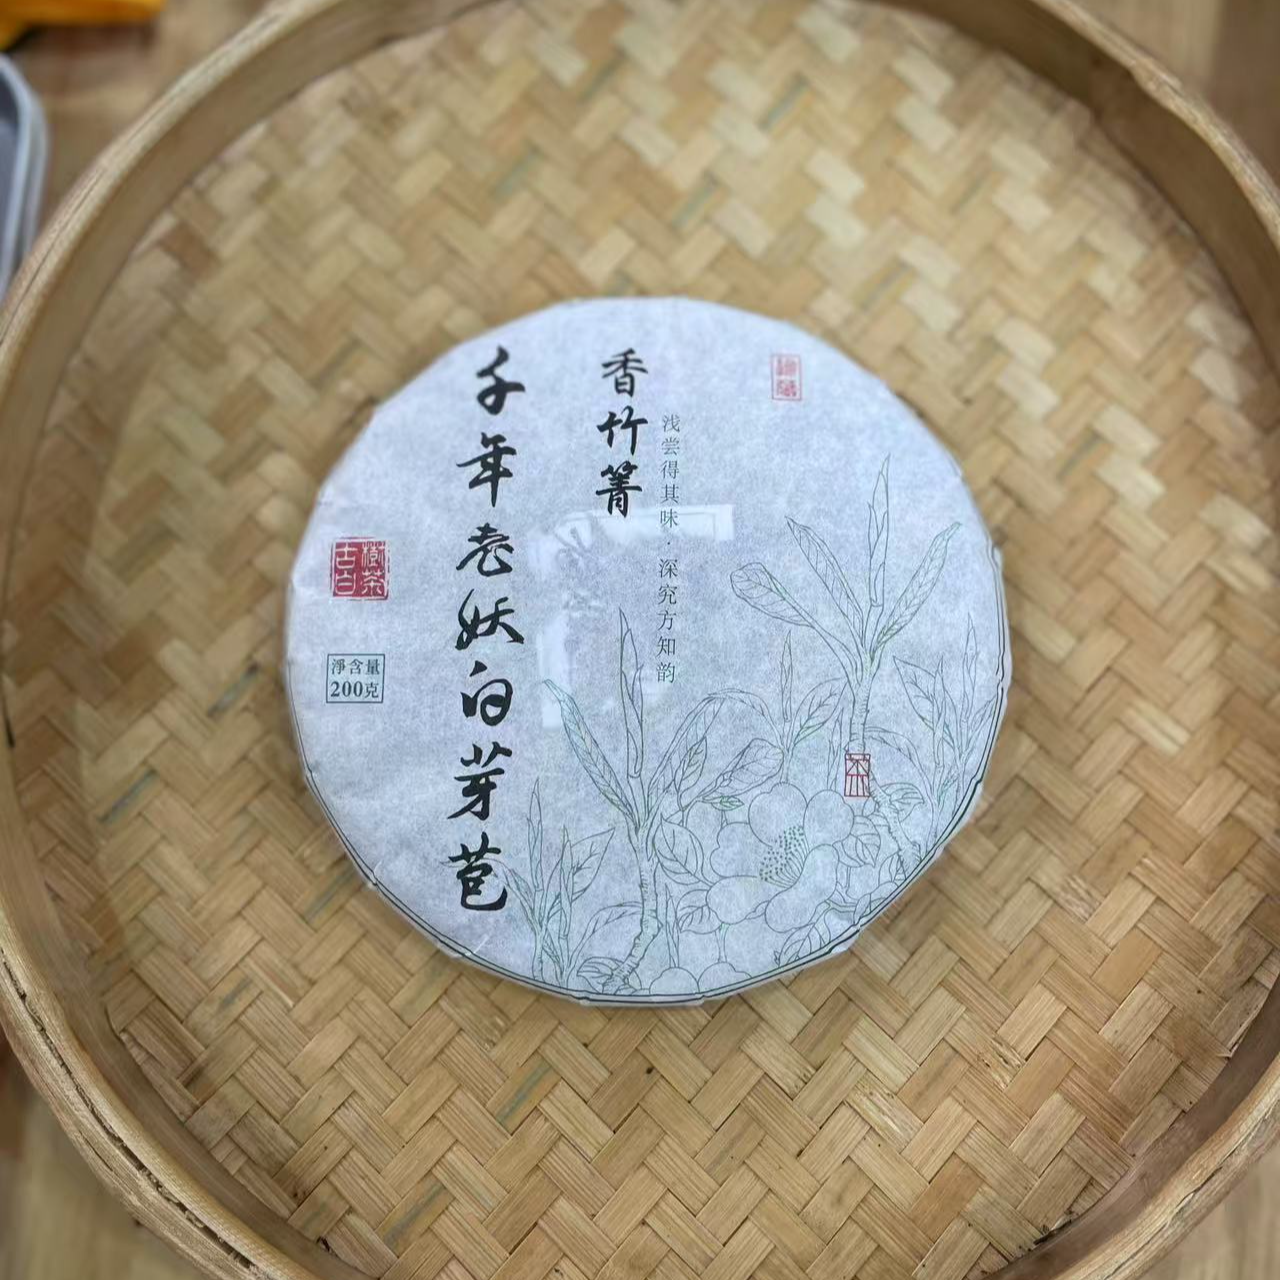 浅尝得其味·深究方知韵
香竹箐
千年老妖白芽苞
古白樹茶
淨含量
200克
茶